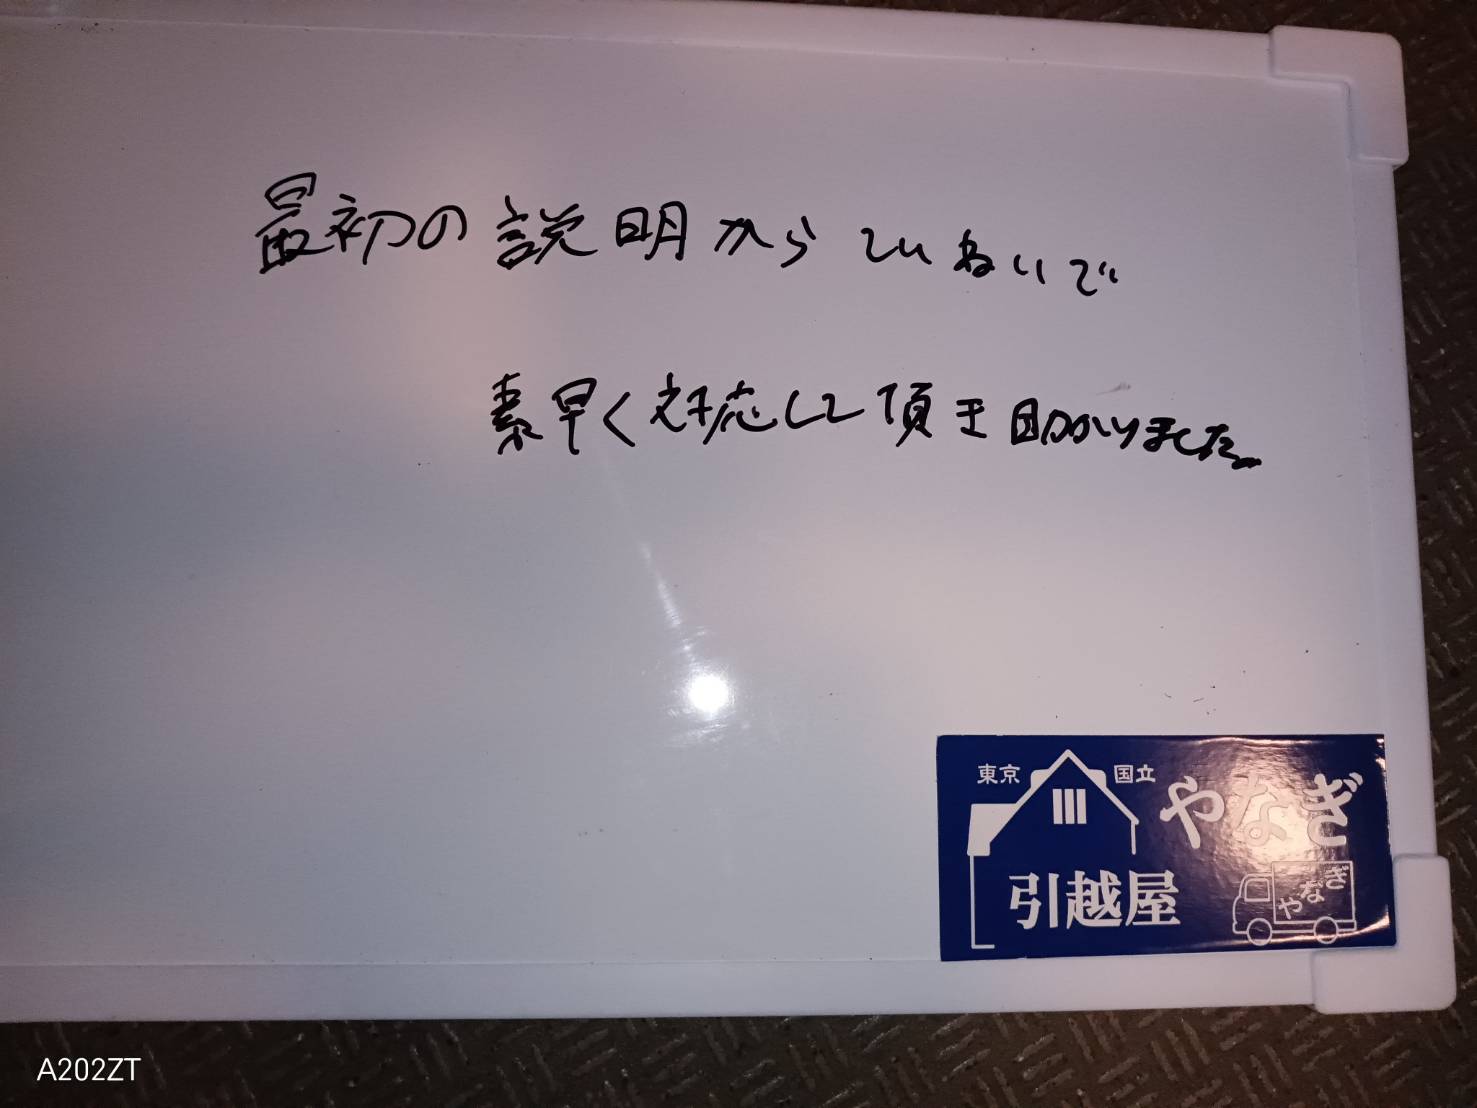 最初の説明からていねいで
素早く対応して頂き助かりました。
東京 国立 やなぎ
引越屋
やなぎ
A202ZT